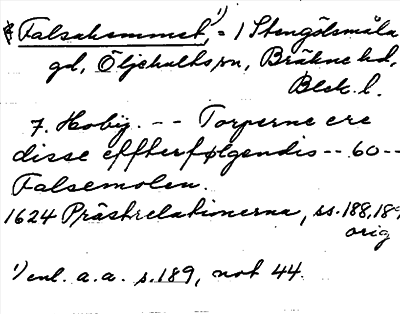 Falsahemmet,¹⁾ = 1 Stengölsmåla
gd, Öljehults sn, Bräkne hd,
Blek. l.
7. Hoby. -- Torperne ere
disse effterfølgendis -- 60 --
Falsemolen.
1624 Prästrelationerna, ss. 188, 189
orig
¹⁾ enl. a.a. s. 189, not 44.